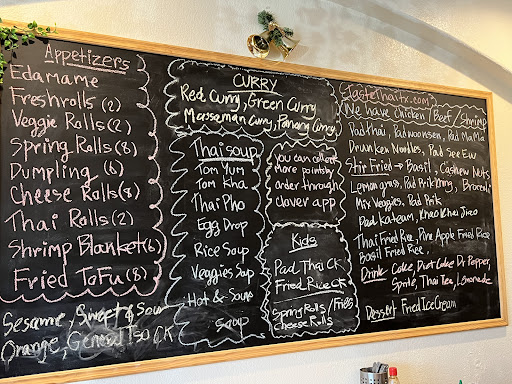 Appetizers
Edamame
Freshrolls (2)
Veggie Rolls (2)
Spring Rolls (8)
Dumpling (6)
Cheese Rolls (8)
Thai Rolls (2)
Shrimp Blanket (6)
Fried Tofu (8)
Sesame, Sweet & Sour
Orange, General Tso CK
CURRY
Red Curry, Green Curry
Massaman Curry, Panang Curry
Thai soup
Tom Yum
Tom Kha
Thai Pho
Egg Drop
Rice Soup
Veggies Soup
Hot & Sour
Soup
you can collect
more points by
order through
clover app
Kids
Pad Thai CK
Fried Rice CK
Spring Rolls / Fries
Cheese Rolls
tastethaitx.com
We have chicken / Beef / Shrimp
Pad thai, Pad woonsen, Pad Ma Ma
Drunken Noodles, Pad See Ew
Stir Fried → Basil, Cashew Nuts
Lemon grass, Pad Prik Khing, Broccoli
Mix Veggies, Pad Prik
Pad Kateam, Khao Kha Jiao
Thai Fried Rice, Pine Apple Fried Rice
Basil Fried Rice,
Drink Coke, Diet Coke Dr Pepper,
Sprite, Thai Tea, Lemonade
Dessert Fried Ice Cream